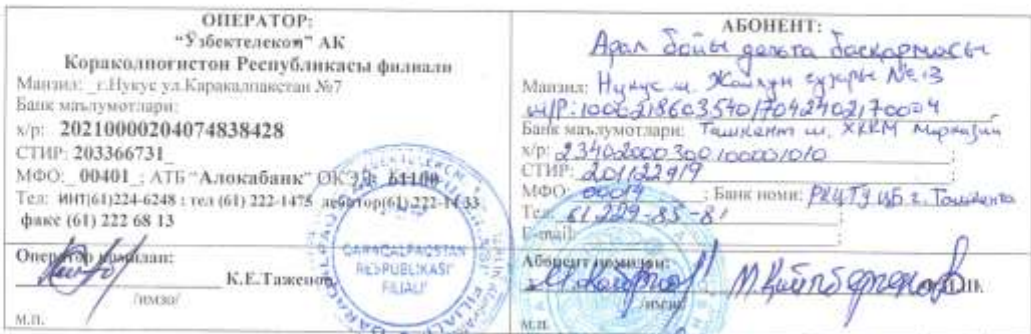 ОПЕРАТОР:
“Ўзбектелеком” АК
Кораколпогистон Республикаси филиали
Манзил: г.Нукус ул.Каракалпакстан №7
Банк маълумотлари:
х/р: 20210000204074838428
СТИР: 203366731
МФО: 00401 ; АТБ “Алокабанк” ОКЭД: 61100
Тел: ИНТ(61)224-6248 ; тел (61) 222-1475 дебитор(61) 222-14 33
факс (61) 222 68 13
Оператор номидан:
К.Е.Таженов
/имзо/
М.П.
QARAQALPAQSTAN
RESPUBLIKASI
FILIALI
АБОНЕНТ:
Арал бойы делта басқармасы
Манзил: Нукус ш. Жайхун №13
ш/р: 100021860354017042402170004
Банк маълумотлари: Тошкент ш. ХККМ Марказий
х/р: 23402000300100001010
СТИР: 201122919
МФО: 00014 ; Банк номи: РКЦ ГУ ЦБ г. Ташкента
Тел: 61 229-85-81
E-mail:
Абонент номидан:
/имзо/
М.П.